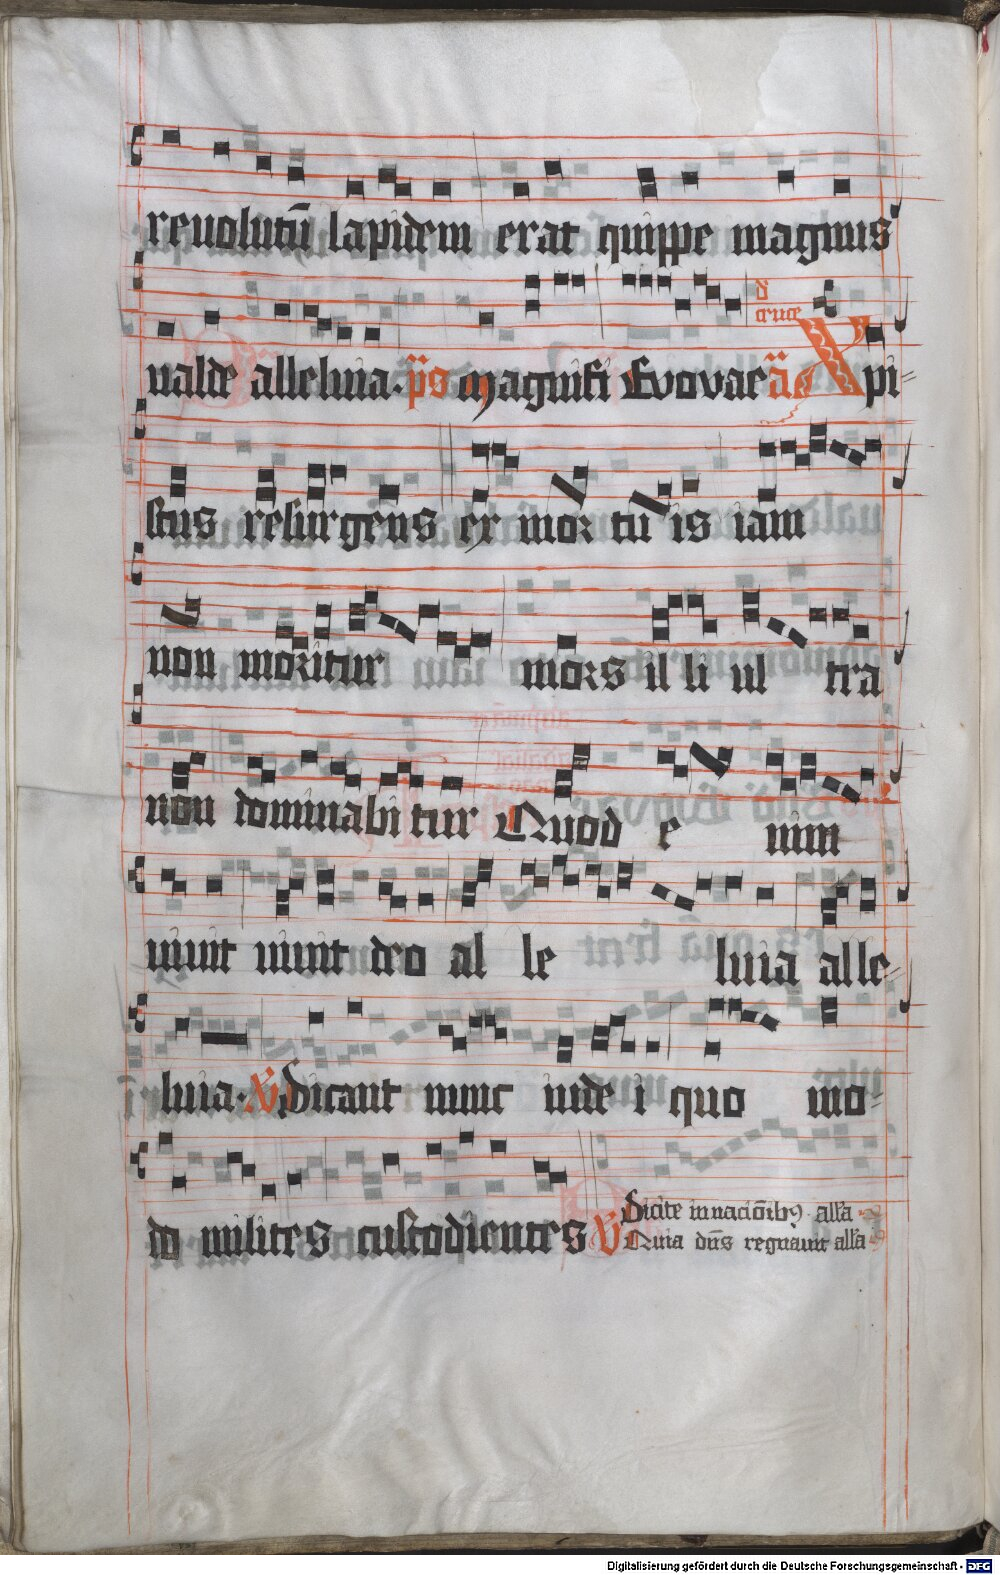 reuolutū lapidem erat quippe magnus
d̄
cruce
ualde alleluia. p̄s Magnifi Euovae ā Xpi=
stus resurgens ex mor tu is iam
non moritur mors il li ul tra
non dominabi tur Quod e nim
uiuit uiuit deo al le luia alle=
luia. V̄ Dicant nunc iude i quo mo=
do milites custodientes V̄ Dicite in nacōib9 all'a
Quia dn̄s regnauit all'a
Digitalisierung gefördert durch die Deutsche Forschungsgemeinschaft - DFG